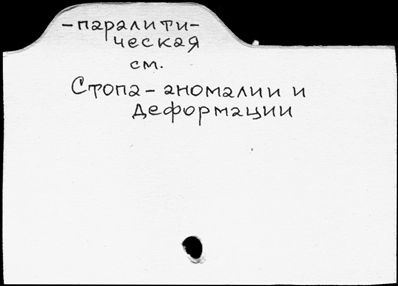 -паралити-
ческая
см.
Стопа - аномалии и
деформации